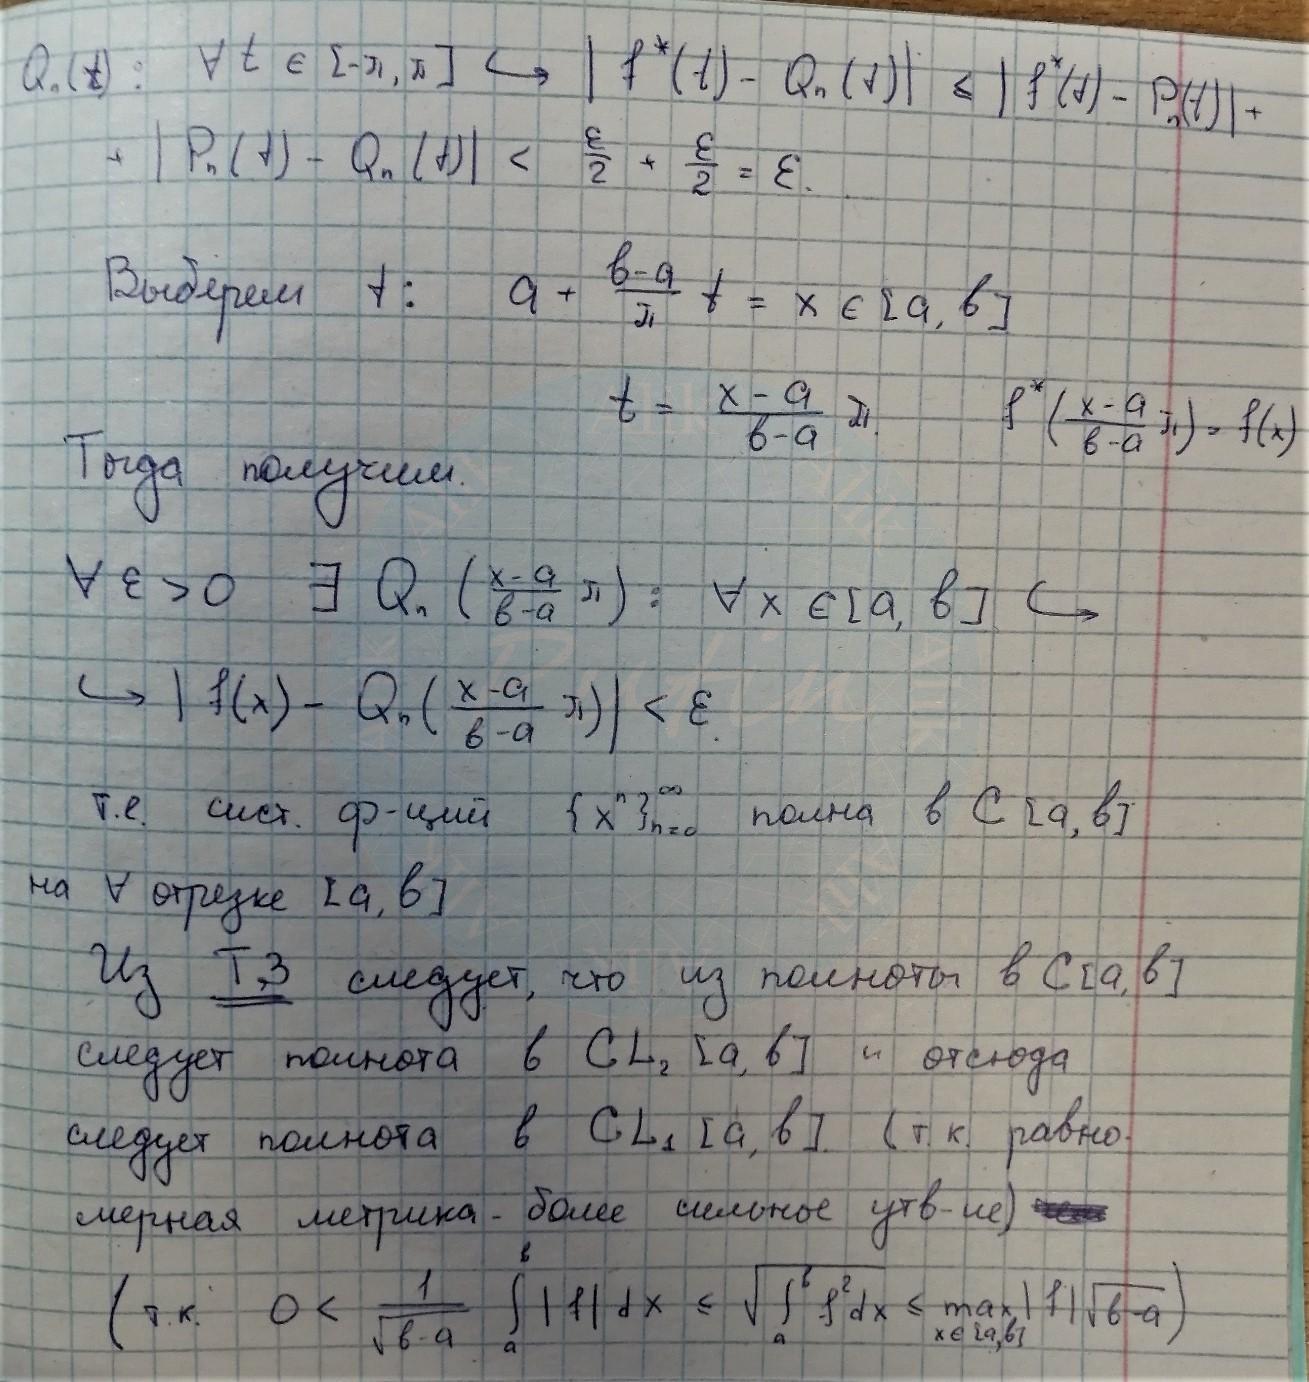 Qₙ(t): ∀ t ∈ [-π, π] ↪ | f*(t) - Qₙ(t)| ≤ | f*(t) - Pₙ(t)| +
+ | Pₙ(t) - Qₙ(t)| < ε/2 + ε/2 = ε.
Выберем t: a + (b-a)/π t = x ∈ [a, b]
t = (x-a)/(b-a) π. f*((x-a)/(b-a) π) = f(x)
Тогда получим.
∀ ε > 0 ∃ Qₙ((x-a)/(b-a) π): ∀ x ∈ [a, b] ↪
↪ | f(x) - Qₙ((x-a)/(b-a) π)| < ε.
т.е. сист. ф-ций {xⁿ}ₙ₌₀^∞ полна в C [a, b]
на ∀ отрезке [a, b]
Из Т.3 следует, что из полноты в C[a, b]
следует полнота в CL₂ [a, b] и отсюда
следует полнота в CL₁ [a, b]. (т.к. равно-
мерная метрика - более сильное утв-ие)
(т.к. 0 < 1/√(b-a) ∫ₐᵇ |f| dx ≤ √(∫ₐᵇ f² dx) ≤ max_{x∈[a,b]} |f| √(b-a))